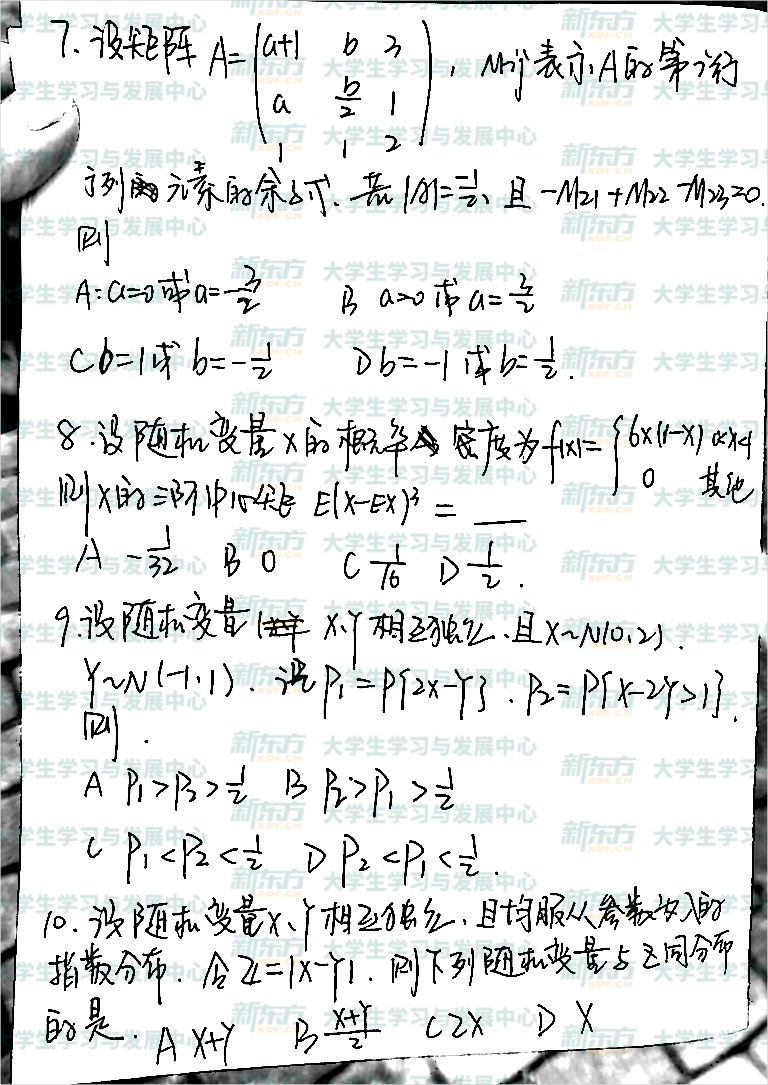 7. 设矩阵 A=(a+1 b 3
a b/2 1
1 1 2), Mij表示A的第i行
j列元素的余子式. 若|A|=-1/2, 且-M21+M22-M23=0.
则
A: a=0或a=-3/2 B a=0或a=3/2
C b=1或b=-1/2 D b=-1或b=1/2.
8. 设随机变量X的概率密度为f(x)={6x(1-x) 0<x<1
0 其他
则X的三阶中心矩 E(X-EX)³=___
A -1/32 B 0 C 1/16 D 1/2.
9. 设随机变量X、Y相互独立. 且X~N(0,2).
Y~N(-1,1). 设P1=P{2X-Y}. P2=P{X-2Y>1}.
则.
A P1>P2>1/2 B P2>P1>1/2
C P1<P2<1/2 D P2<P1<1/2.
10. 设随机变量X、Y相互独立. 且均服从参数为λ的
指数分布. 令Z=|X-Y|. 则下列随机变量与Z同分布
的是.
A X+Y B (X+Y)/2 C 2X D X
新东方 XDF.CN 大学生学习与发展中心